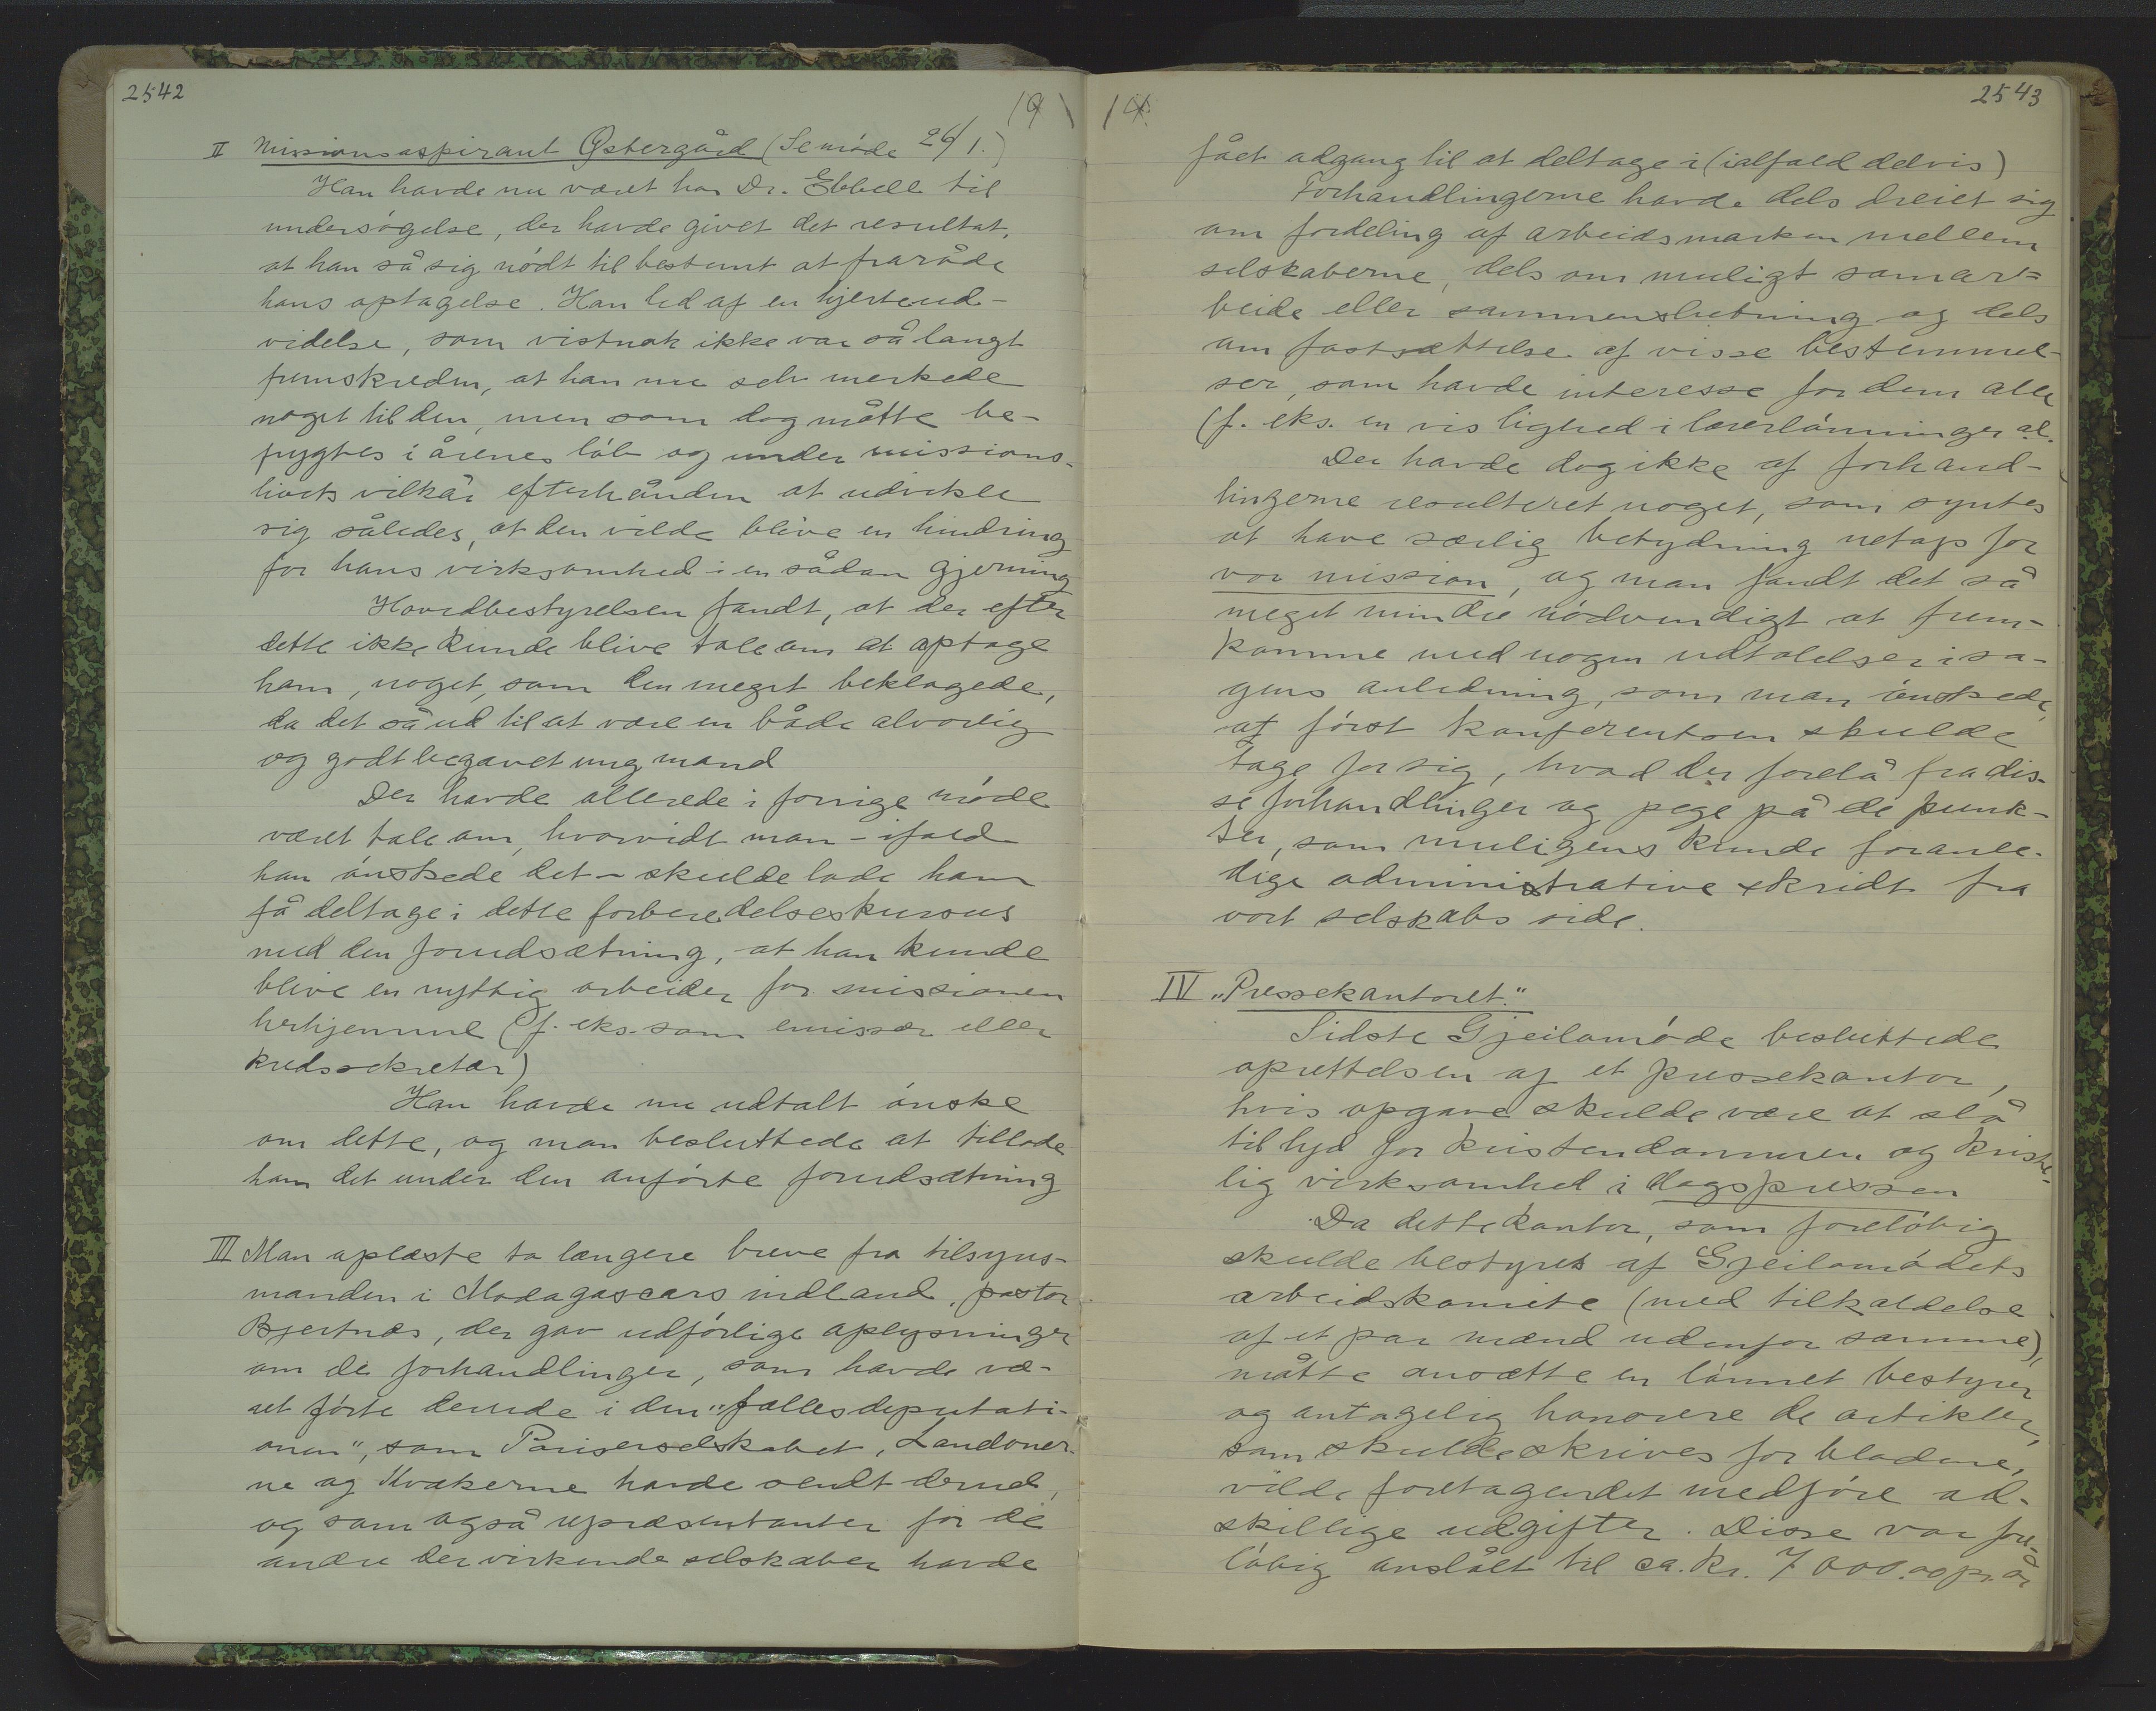 2542
19
II Missionsaspirant Østergård (Se möde 26/1.)
Han havde nu været hos Dr. Ebbell til
undersögelse, der havde givet det resultat,
at han så sig nödt til bestemt at fraråde
hans optagelse. Han led af en hjerteud-
videlse, som vistnok ikke var så langt
fremskreden, at han nu selv merkede
noget til den, men som dog måtte be-
frygtes i årenes löb og under missions-
livets vilkår efterhånden at udvikle
sig således, at den vilde blive en hindring
for hans virksomhed i en sådan gjerning
Hovedbestyrelsen fandt, at der efter
dette ikke kunde blive tale om at optage
ham, noget, som den meget beklagede,
da det så ud til at være en både alvorlig
og godt begavet ung mand
Der havde allerede i forrige möde
været tale om, hvorvidt man - ifald
han önskede det - skulde lade ham
få deltage i dette forberedelseskursus
med den forudsætning, at han kunde
blive en nyttig arbeider for missionen
herhjemme (f. eks. som emissær eller
kredssekretær)
Han havde nu udtalt önske
om dette, og man besluttede at tillade
ham det under den anförte forudsætning
III Man oplæste to længere breve fra tilsyns-
manden i Madagascars indland, pastor
Bjertnæs, der gav udförlige oplysninger
om de forhandlinger, som havde væ-
ret förte dernede i den "fællesdeputati-
onen", som Pariserselskabet, Londoner-
ne og Kvækerne havde sendt derned,
og som også repræsentanter for de
andre der virkende selskaber havde
14
2543
fået adgang til at deltage i (ialfald delvis)
Forhandlingerne havde dels dreiet sig
om fordeling af arbeidsmarken mellem
selskaberne, dels om muligt samar=
beide eller sammenslutning og dels
om fastsættelse af visse bestemmel-
ser, som havde interesse for dem alle
(f. eks. en vis lighed i lærerlönninger o.l.
Der havde dog ikke af forhand-
lingerne resulteret noget, som syntes
at have særlig betydning netop for
vor mission, og man fandt det så
meget mindre nödvendigt at frem-
komme med nogen udtalelser i sa-
gens anledning, som man önskede,
at först konferentsen skulde
tage for sig, hvad der forelå fra dis-
se forhandlinger og pege på de punk-
ter, som muligens kunde foranle-
dige administrative skridt fra
vort selskabs side.
IV "Pressekontoret."
Sidste Gjeilomöde besluttede
oprettelsen af et pressekontor,
hvis opgave skulde være at slå
til lyd for kristendommen og kriste-
lig virksomhed i dagspressen
Da dette kontor, som forelöbig
skulde bestyres af Gjeilomödets
arbeidskomite (med tilkaldelse
af et par mænd udenfor samme),
måtte ansætte en lönnet bestyrer
og antagelig honorere de artikler,
som skulde skrives for bladene,
vilde foretagendet medföre ad-
skillige udgifter. Disse var fore-
löbig anslået til ca. kr. 7000.00 pr. år